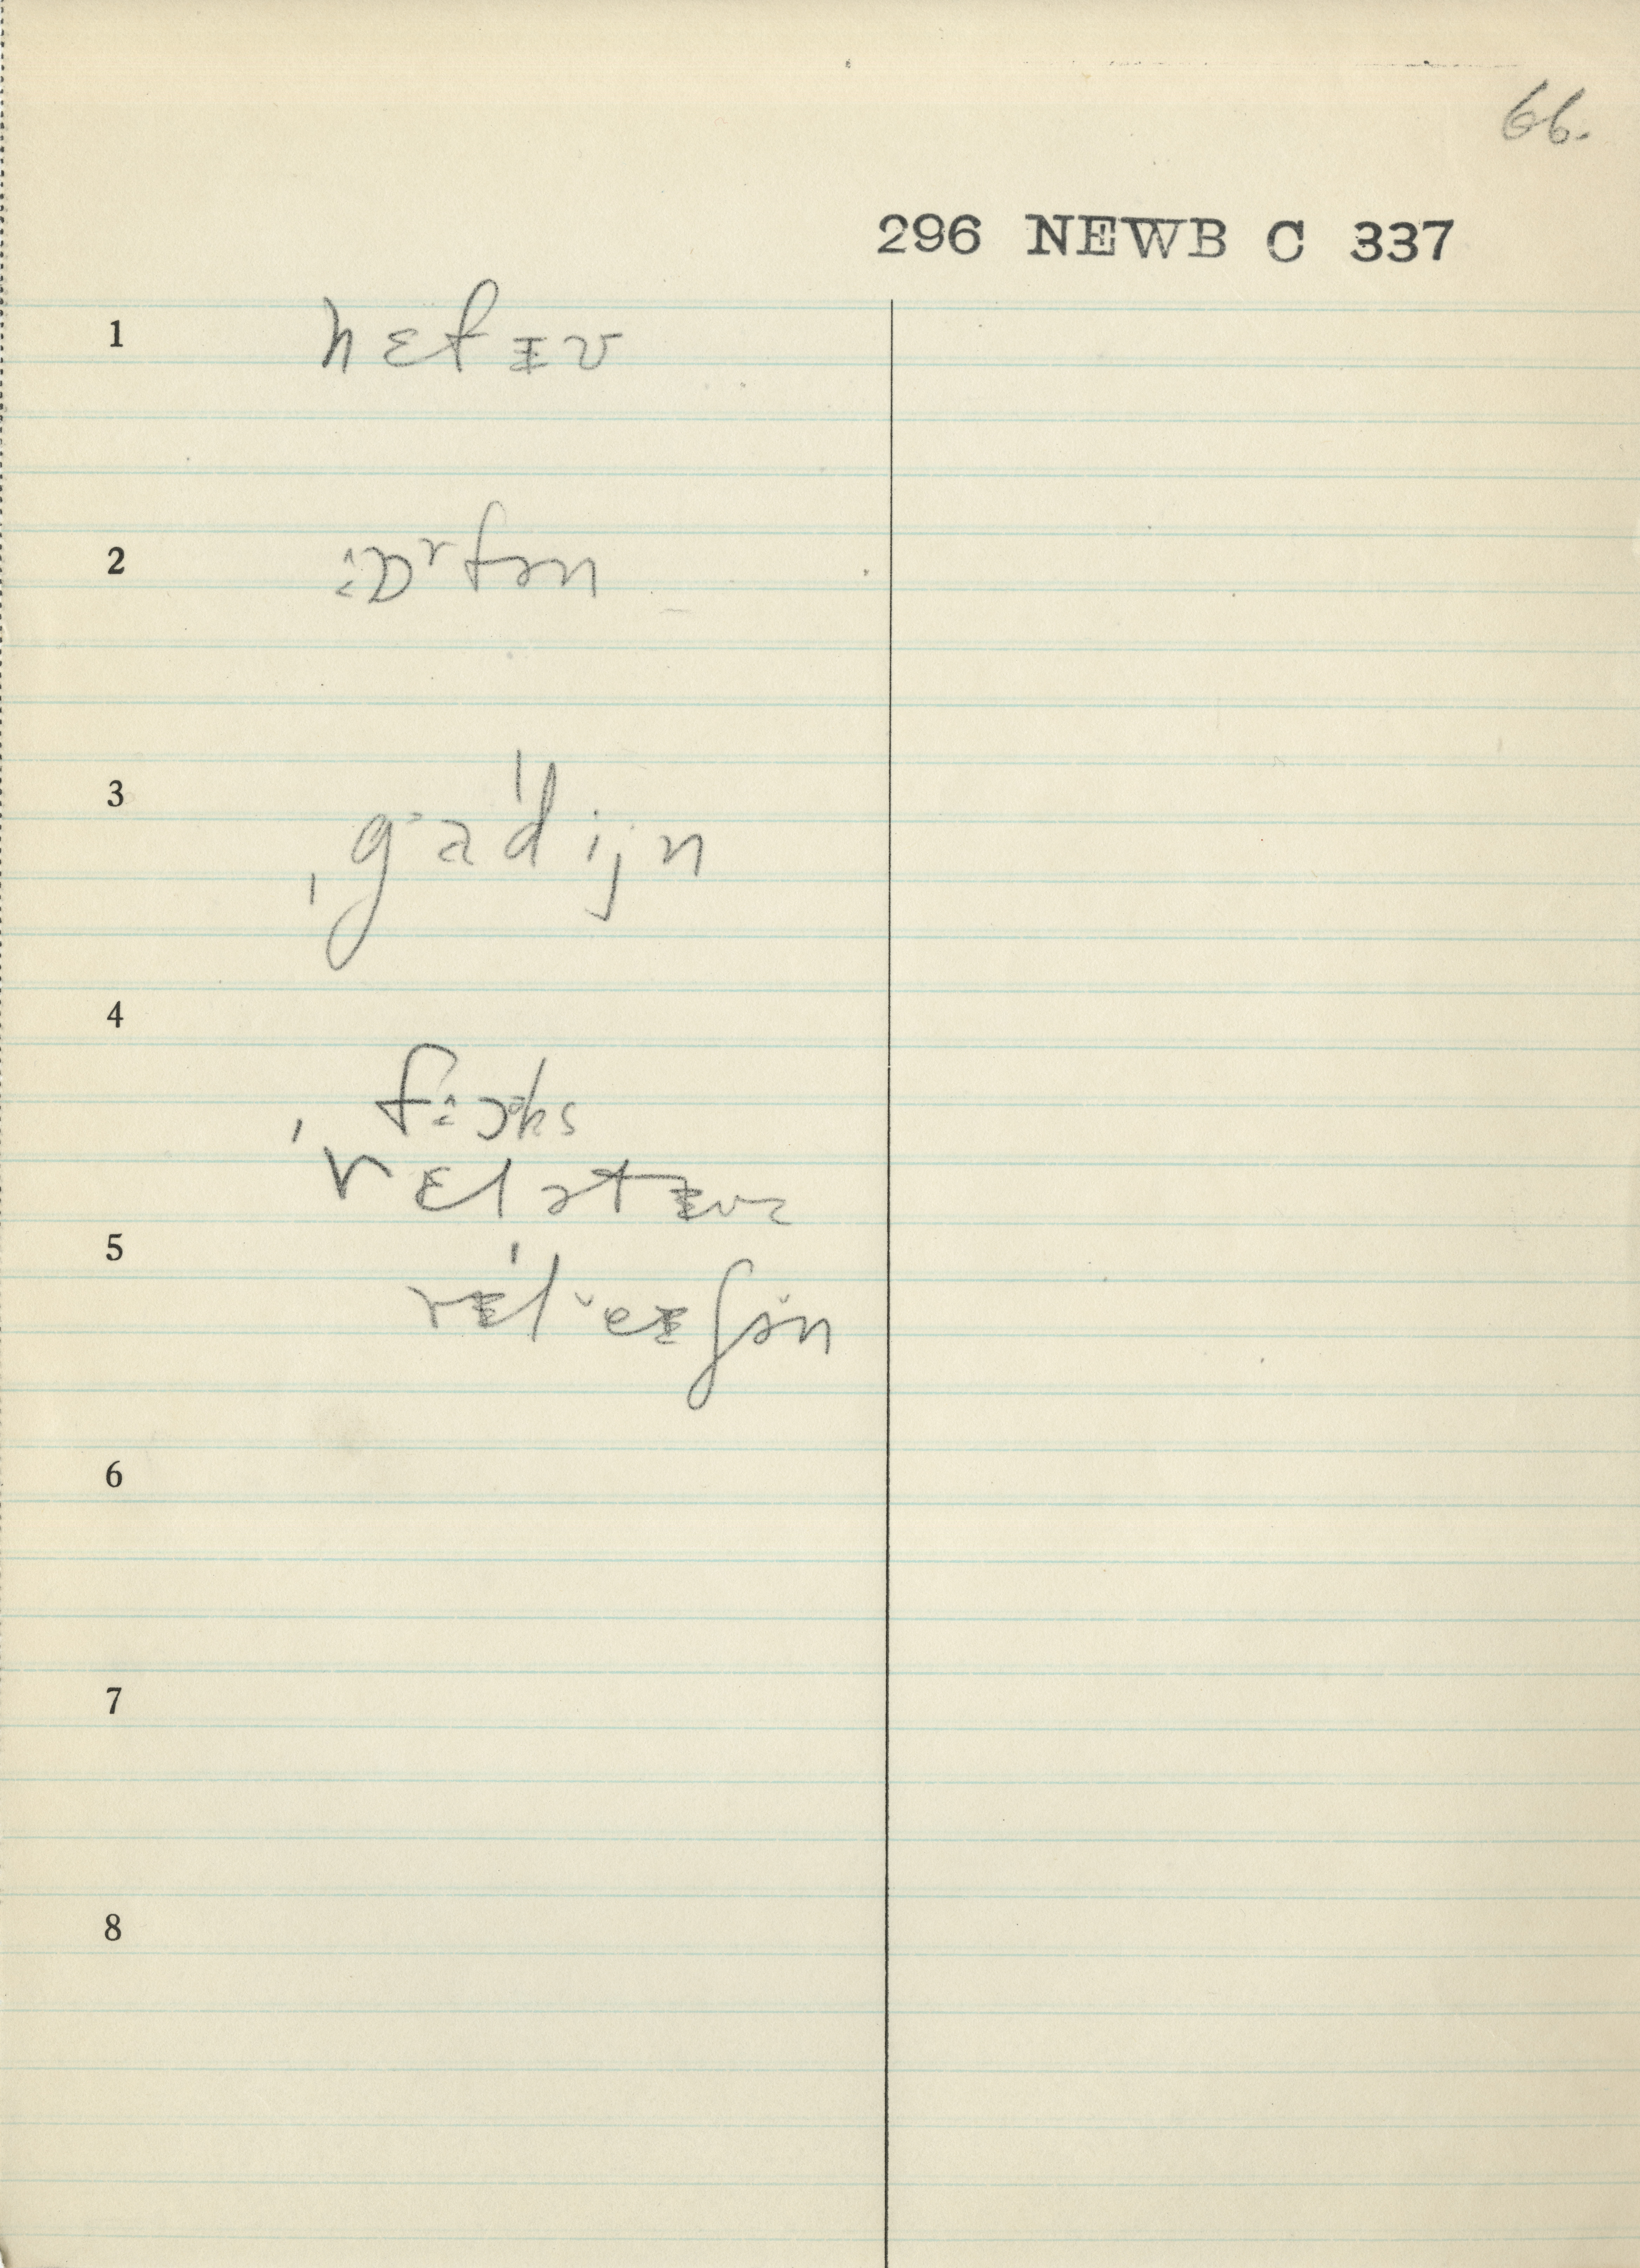 66.
296 NEWB C 337
1 nɛfɪv
2 ɔɒʳfən
3 ˌgɑˑəˈdijn
4
fɔks
ˈrɛlətɪvz
5 rɪˈleɪʃən
6
7
8